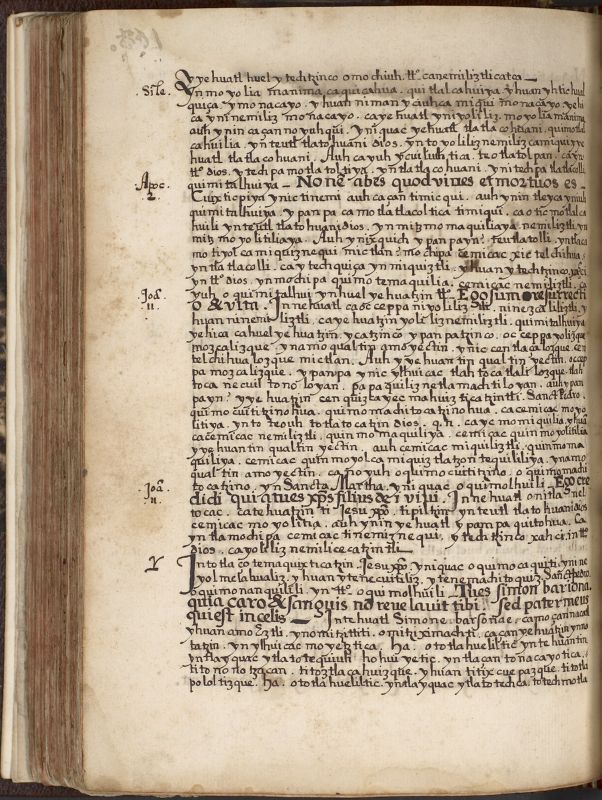 yye huatl huel ytechtzinco omochiuh. tt⁰. canemiliztli catca —
Sile. ynmo yolia manima, ca qui cahua. qui tlal cahuiya. yhuan yhtic hual
quiça. ymo nacayo. yhuan niman yc iuhca miqui mo nacayo. yehi
ca yni nemiliz mo nacayo. caye huatl yni yoliliz. mo yolia manima
auh ynin ca çan no yuhqui. yni quac ye huatl tlatla cohuani. quimo tlal
cahuilia. yn teutl tlatohuani dios. yn to yoliliz nemiliz
huatl tlatlacohuani. Auh ca yuh ycuiliuhtica. teotlatolpan.
dios. ytech pa motlatoltiya. yn tlatlacohuani. yni techpa tlatlacolli
Apoc. 2 quimitalhuiya — Nomen abes quod viues et mortuos es —
Cuix ticpiya ynic tinemi auh ca çan timic qui. auh ynin tleyca yniuh
quimitalhuiya. ypanpa ca motlatlacoltica timiqui. ca otic motlalca
huili yn teutl tlatohuani dios. yn mitzmo maquiliaya. nemiliztli. yn
mitzmo yolitiliaya. Auh ynix quich ypanpayn? teutlatolli. yn tlaca
mo tiyol ca miquiznequi mictlan? mochipa cemicac xic tlelchihua,
yn tla tlacolli. ca ytech quiça yn miquiztli. yhuan ytechtzinco, xaci
yn tt⁰ dios. yn mochipa quimo temaquilia. cemicac nemiliztli. ca
Joā. 11. yuh o quimitalhui yn huel ye huatzin tt⁰. Ego sum resurrecti
o & vita. Inne huatl ca oc ceppa niyoliliz . nine zcaliliztli. y
huan ninemiliztli. ca ye huatzin yoliliz nemiliztli. quimitalhuiya
yehica ca huel ye huatzin. ycatzinco ypanpatzinco. oc ceppa yolizque
mozcalizque. yn amo qualtin amo yectin. ynic centlacalozque. cen
telchihualozque mictlan. Auh yye huantin qualtin yectin. oc cep
pa mozcalizque. ypanpa ynic ylhuicac tlahtocatlalilozque. tlah
tocanecuiltonoloyan. papaquiliznetlamachtiloyan. auh ypan
payn? yye huatzin cenquizcayecmahuizticatzintli. Sanct Pedro.
quimocuititzinohua. quimomachitocatzinohua. ca cemicac moyo
litiya. yn toteouh totlatocatzin dios. q.n. ca ye momiquilia. yhuan
ca cemicac nemiliztli. quinmo maquiliya. cemicac quinmoyolitilia
yye huantin qualtin yectin. auh cemicac miquiliztli. quinmo ma
quiliya. cemicac quinmo yolcamiquiztlatzontequililiya. yn amo
qual tin amo yectin. ca no yuh oquimo cuititzino. oquimo machi
Joā. 11. tocatzino. yn Sancta Martha. yniquac oquimolhuili. Ego cre
didi quia tu es xp̄s filius dei viui. Inne huatl onitla nel
tocac. ca te huatzin ti Jesu xp̄o. tipiltzin yn teutl tlatohuani dios
cemicac moyolitia. auh ynin ye huatl ypanpa quitohua. Ca
yn tla mochipa cemicac tinemiznequi. ytechtzinco xahci. in tt⁰
dios. ca yoliliz nemilicecatzintli
Y Into tlaçotemaquixticatzin. Jesu xp̄o. yniquac oquimocaquiti. yni ne
yolmelahualiz. yhuan ytenecuitiliz. ytenemachitoquiz Sanct Pedro.
oquimonanquilili. yn tt⁰. oquimolhuili. Tu es simon bariona.
quia caro & sanguis no reuelauit tibi. sed pater meus
qui est in celis — Inte huatl Simone. bar ionae. camo çan nacatl
yhuan amo eztli. ynomitzittiti. omitziximachti. ca çan ye huatzin yno
tatzin. yn ylhuicac moyetztica. Ha. ototlahueliltic ynte huantin
yntlayquac ytlatotequiuh. hohuiyetic. yntlaçan tonacayotica.
titomotlatzcan. titoztlacahuizque. yhuan titixcuepazque. titotla
pololtizque. Ha. ototlahueliltic. yntlayquac ytlatotechca. totechmotla